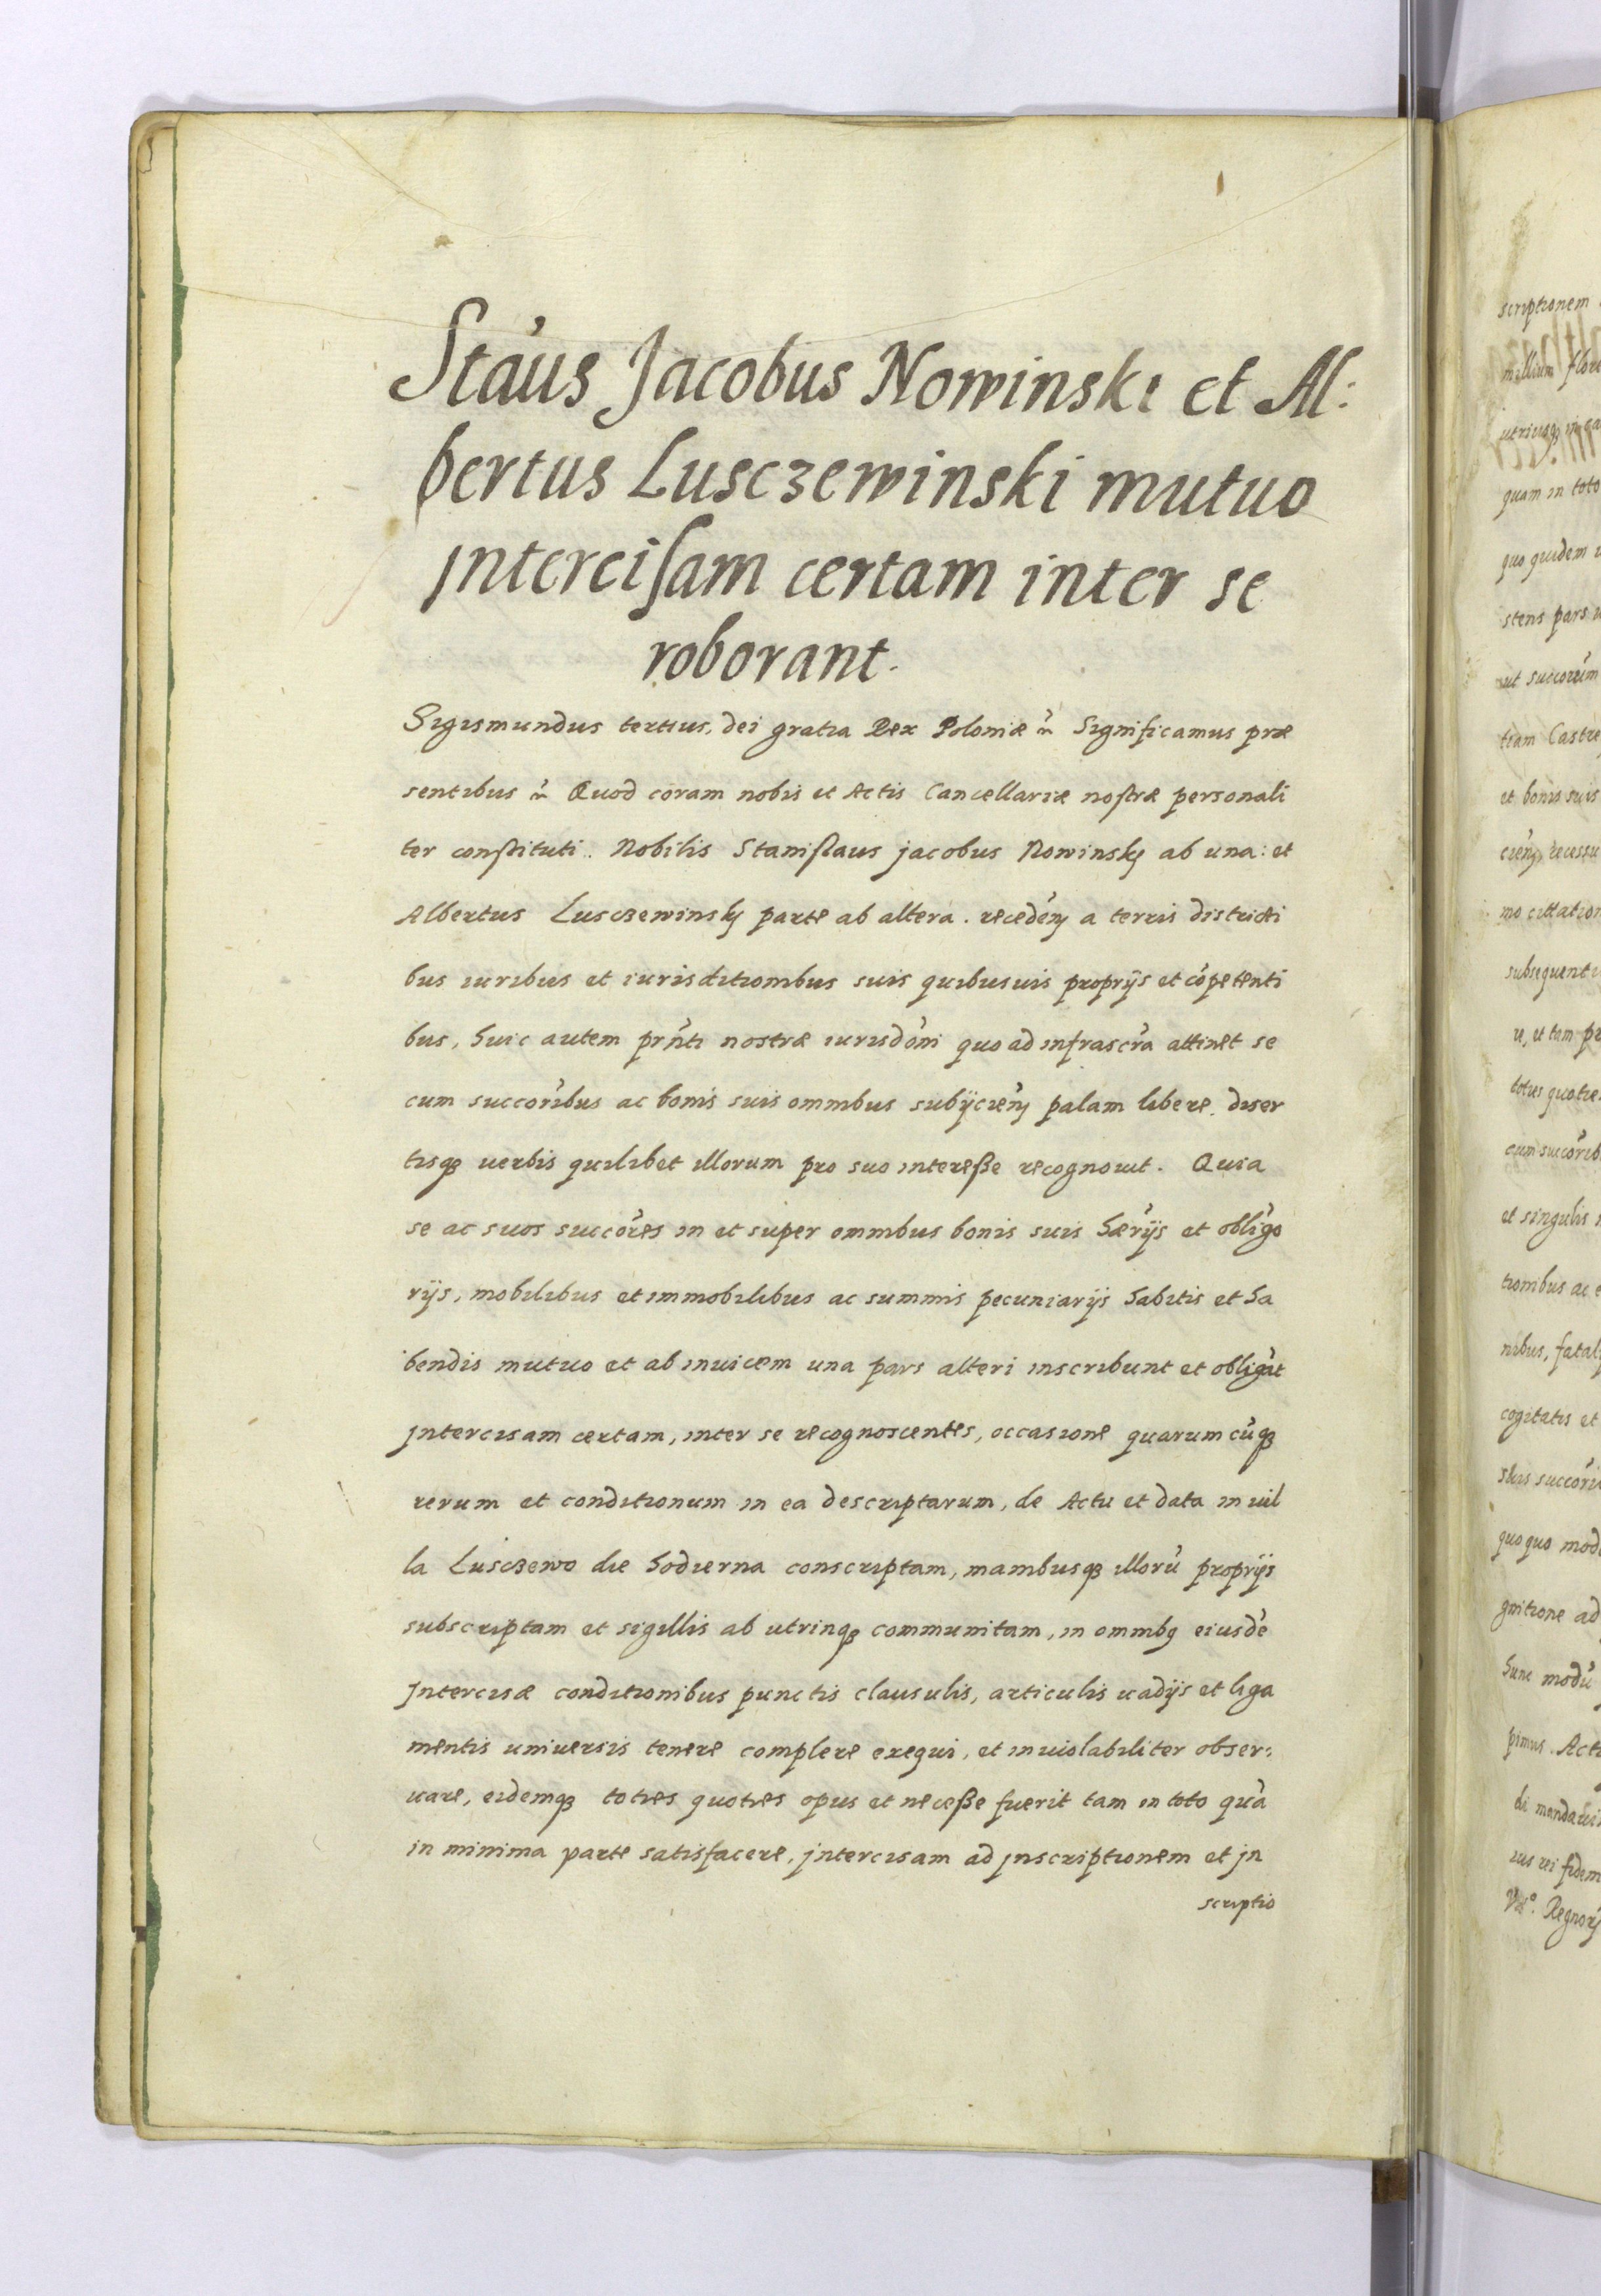 Staus Jacobus Nowinski et Al:
bertus Lusczewinski mutuo
jntercisam certam inter se
roborant.
Sigismundus tertius, dei gratia Rex Poloniæ &c Significamus præ
sentibus &c Quod coram nobis et Actis Cancellariæ nostræ personali
ter constituti. Nobilis Stanislaus jacobus Nowinsky ab una: et
Albertus Lusczewinsky parte ab altera. recedeñ a terris districti
bus iuribus et iurisditionibus suis quibusuis proprijs et cõpetenti
bus, huic autem prñti nostræ iurisdõni quo ad infrascra attinet se
cum succoribus ac bonis suis omnibus subijcieñ palam libere. diser
tisq3 uerbis quilibet illorum pro suo interesse recognouit. Quia
se ac suos succores in et super omnibus bonis suis hærijs et obligo
rijs, mobilibus et immobilibus ac summis pecuniarijs habitis et ha
bendis mutuo et ab inuicem una pars alteri inscribunt et obligãt
jntercisam certam, inter se recognoscentes, occasione quarum cũq3
rerum et conditionum in ea descriptarum, de Actu et data in uil
la Lusczewo die hodierna conscriptam, manibusq3 illorũ proprijs
subscriptam et sigillis ab utrinq3 communitam, in omnibq eiusdẽ
jntercisæ conditionibus punctis clausulis, articulis uadijs et liga
mentis uniuersis tenere complere exequi, et inuiolabiliter obser:
uare, eidemq3 toties quoties opus et necesse fuerit tam in toto quã
in minima parte satisfacere, jntercisam ad jnscriptionem et jn
scriptio
scriptionem
millium flore
quam in toto
quo quidem
stens pars
aut succorum
tiam Castre
et bonis suis
cieñ, recessu
mo citation
subsequent
et tam
toties quotie
cum succorib
et singulis
tionibus ac
nibus, fatal
cogitatis et
suis succori
quo quo modo
gnitione ad
hunc modũ
pimus. Act
di mandaui
ius rei fidem
Regnorũ